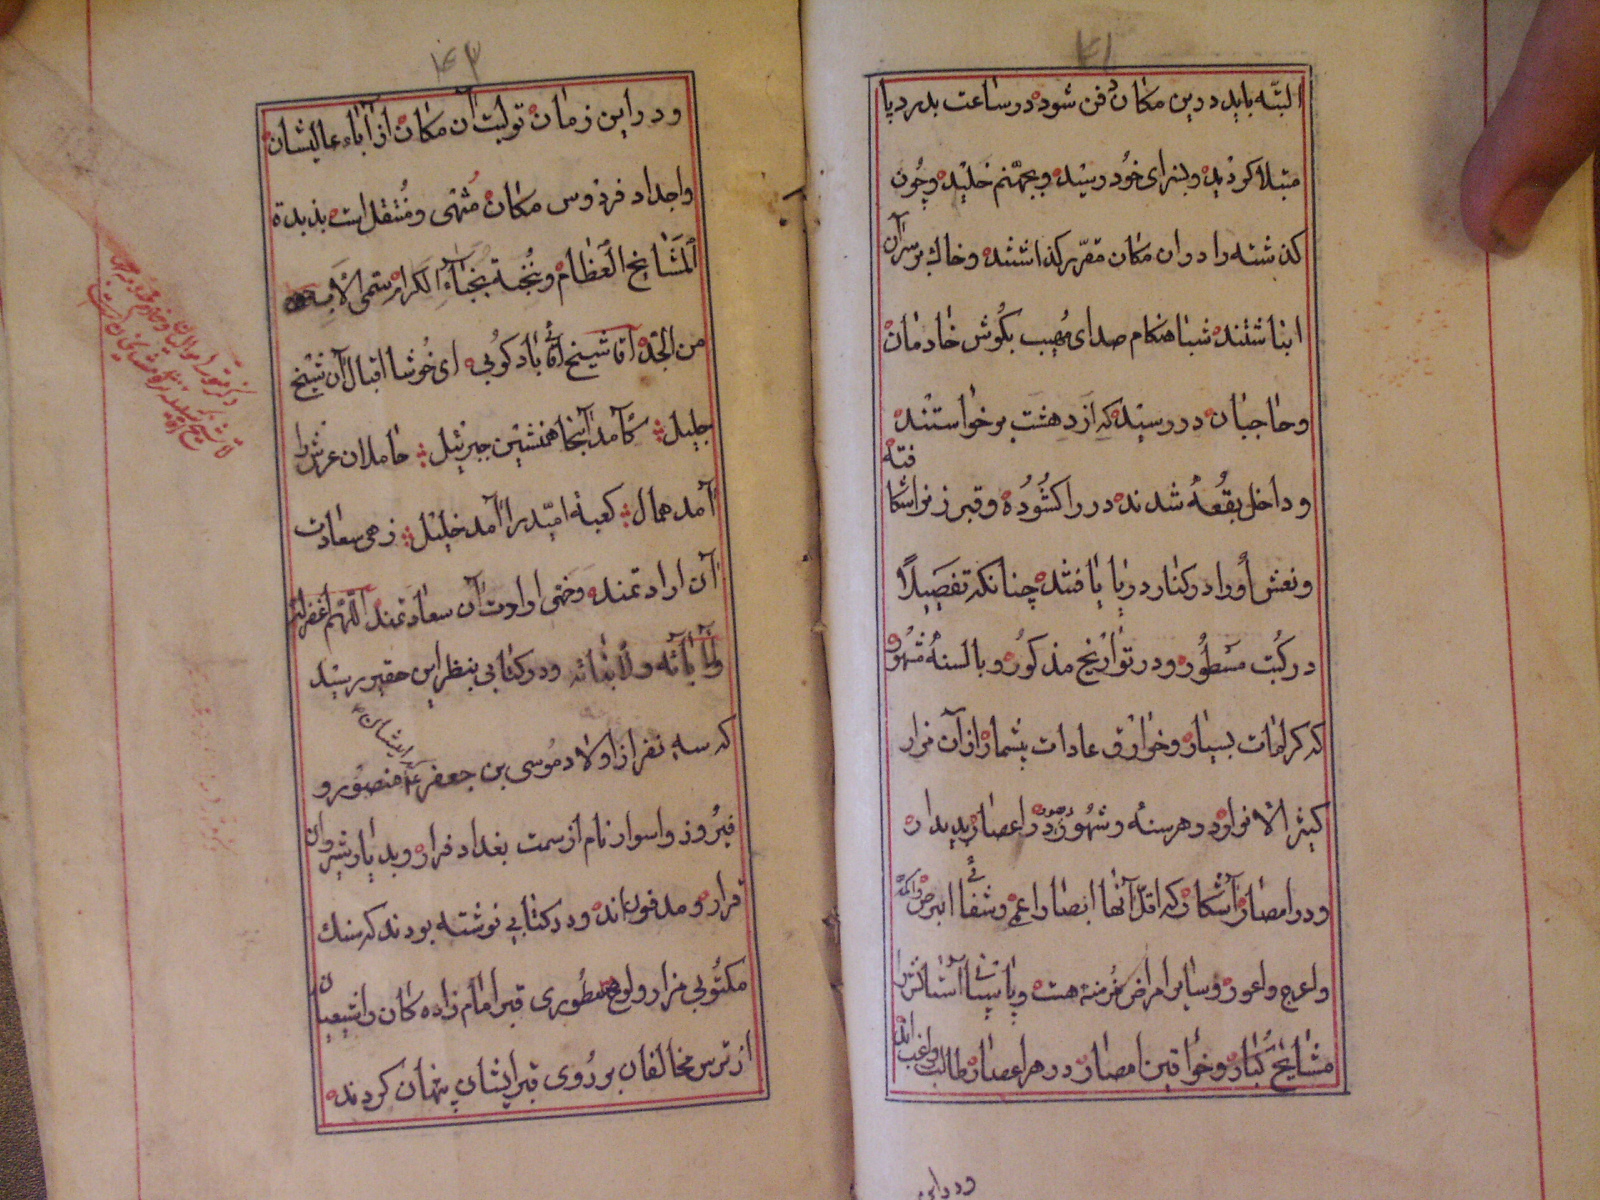 ٤١
البتّه باید درین مکان دفن شود در ساعت بدرد پا
مبتلا کردند و بسزای خود رسید و بجهنّم خلید و چون
کذشته را در ان مکان مقرّر کذاشتند و خاک بر سران
انباشتند شباهنکام صدای مهیب بکوش خادمان
و حاجبان در رسید که از دهشت برخواستند
و داخل بقعه شدند در را کشوده و قبر زنرا شکا
فته
و نعش او را در کنار دریا یافتند چنانکه تفصیلاً
در کتب مسطور و در تواریخ مذکور و بالسنه مشهور
که کرامات بسیار و خوارق عادات بیشمار از آن مزار
کثیر الانوار در هر سنه و شهور در اعصار پدیدار
و در امصار آشکار که اقل آنها ابصار اعمی و شفای ابرص و اکمه
و اعرج و اعور و سایر امراض مزمنه هست و
مشایخ کبار و خواقین امصار در هر اعصار طالب و راغب اند
و در این
٤٣
و در این زمان تولیت آن مکان از آباء عالیشان
و اجداد فردوس مکان منهی و منتقل است بزبدة
المشایخ العظام و نخبة نجباء الکرام سمی الاب
من الجد آقا شیخ آقا بادکوبی ای خوشا اقبال آن شیخ
جلیل کامد آنجا همنشین جبرئیل حاملان عرش را
آمد همال کعبه امید را آمد خلیل زهی سعادت
آن ارادتمند و ختمی ارادت آن سعادتمند اللهم اغفر له
و لآبائه و لابنائه و در کتابی بنظر این حقیر رسید
که سه نفر از اولاد موسی بن جعفر ع منصور و
ایشان
فیروز و اسوار نام از سمت بغداد فرار و بدیار شیروان
قرار و مدفون اند و در کتابی نوشته بودند که سنک
مکتوبی مزار و لوح مسطوری قبر امام زاده کان را شیعیان
از ترس مخالفان بر روی قبر ایشان پنهان کردند